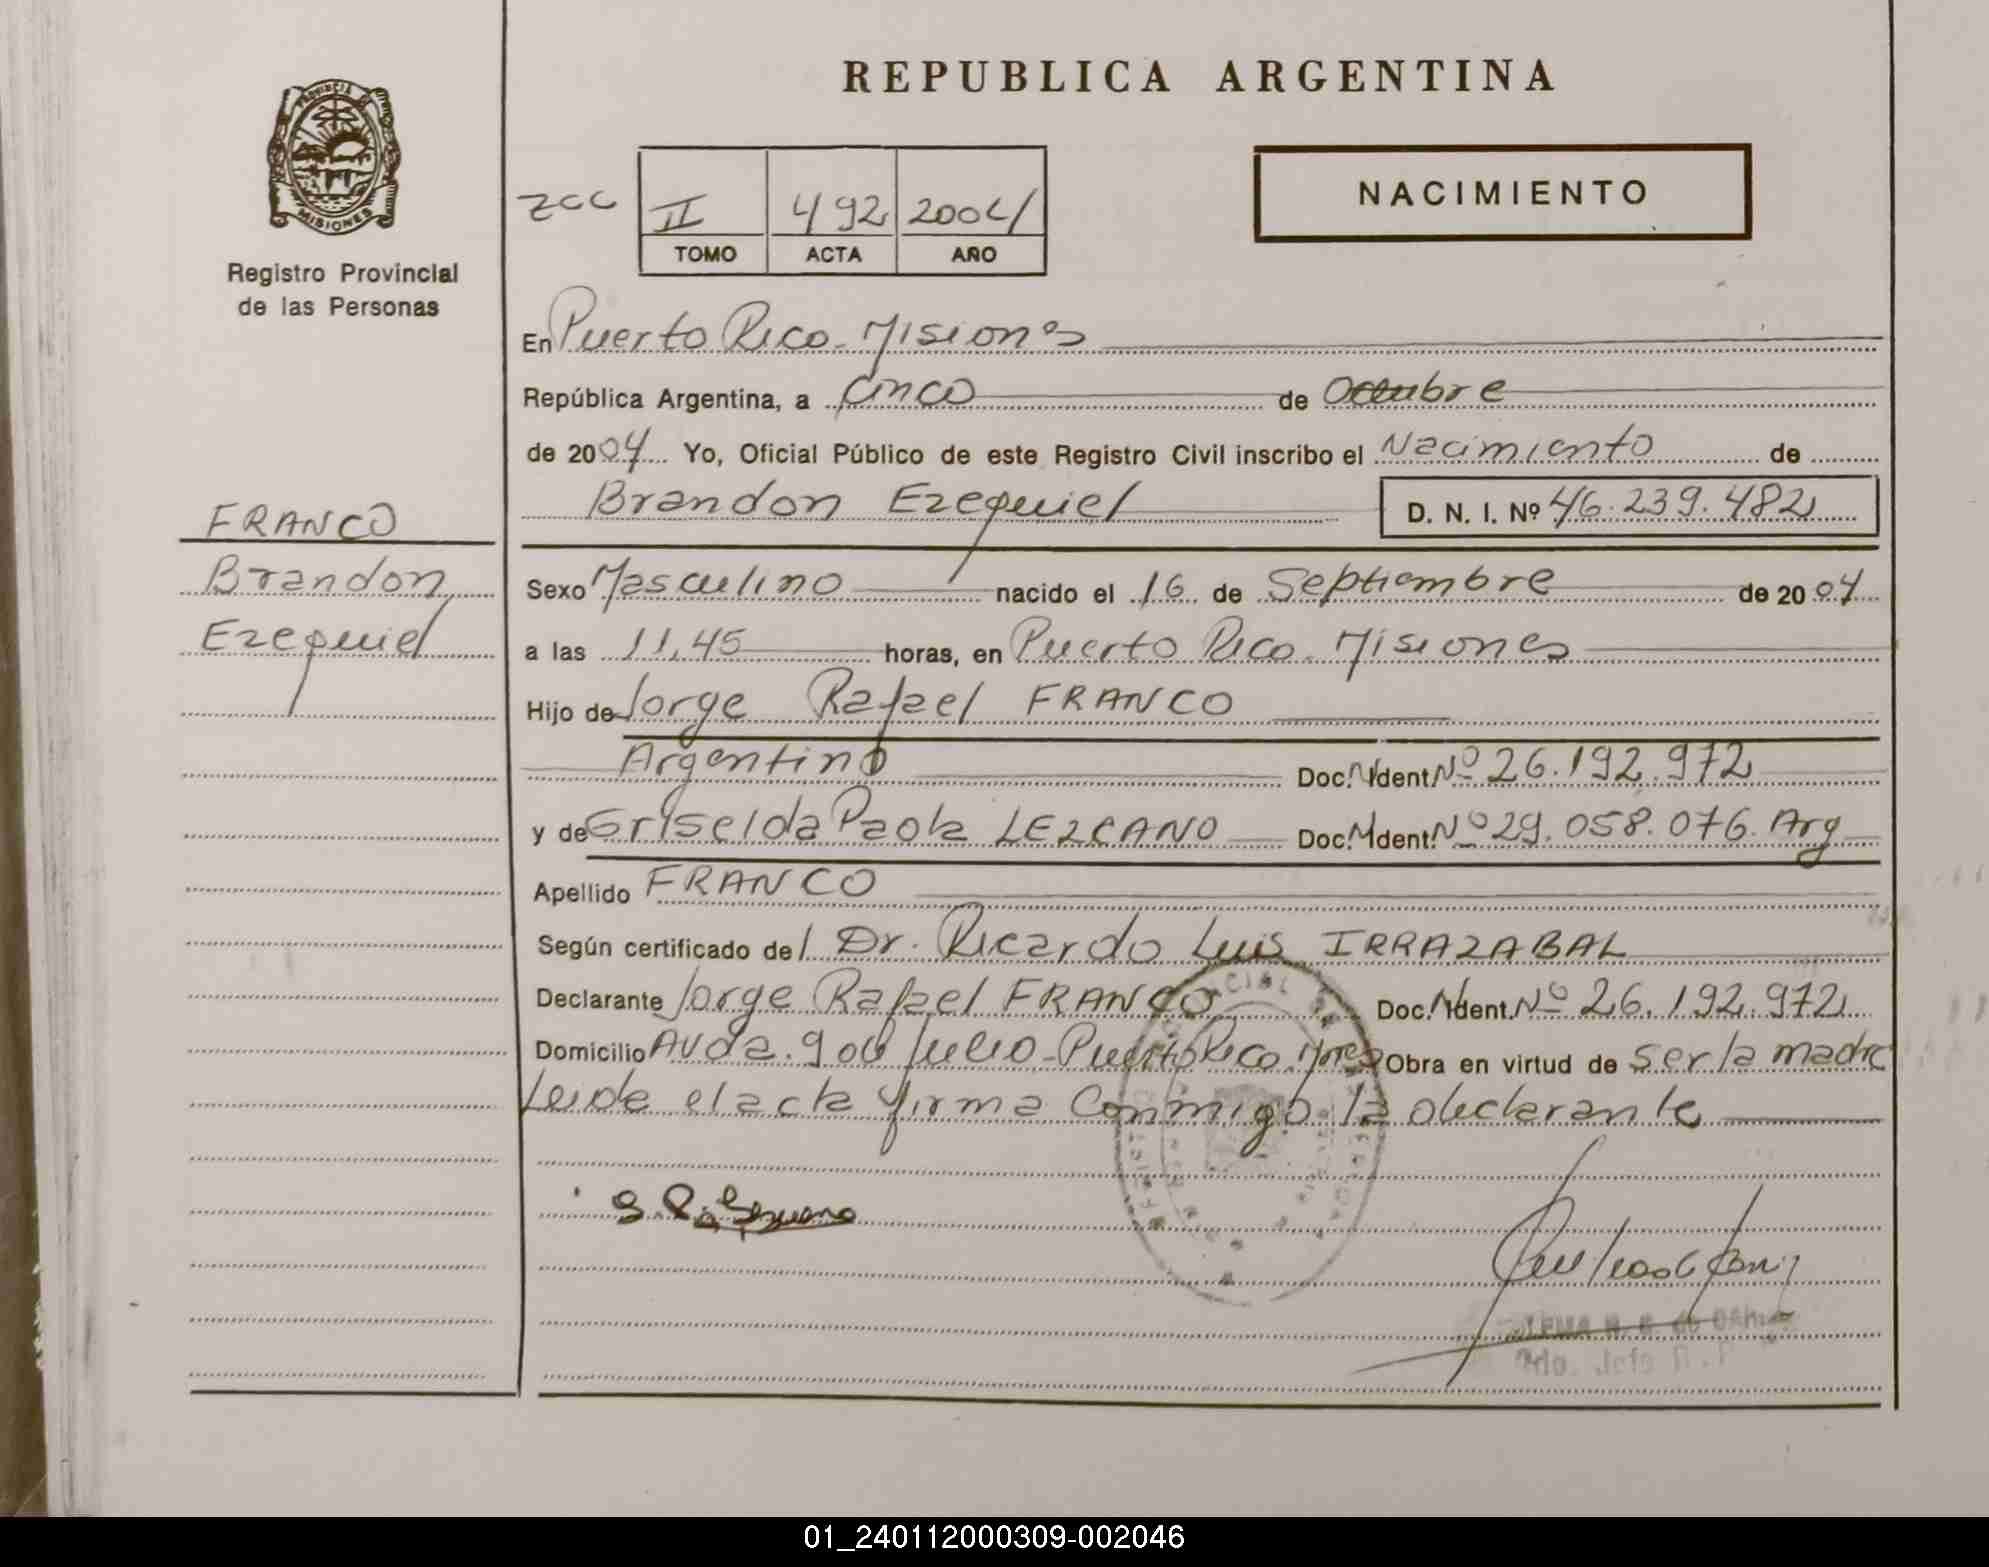 REPUBLICA ARGENTINA
PROVINCIA DE
MISIONES
Registro Provincial
de las Personas
NACIMIENTO
II 492 2004
TOMO ACTA AÑO
En Puerto Rico - Misiones
República Argentina, a Cinco de Octubre
de 2004 Yo, Oficial Público de este Registro Civil inscribo el Nacimiento de
Brandon Ezequiel D. N. I. Nº 46.239.482
FRANCO
Brandon
Ezequiel
Sexo Masculino nacido el 16 de Septiembre de 2004
a las 11,45 horas, en Puerto Rico - Misiones
Hijo de Jorge Rafael FRANCO
Argentino Doc. N. Ident. Nº 26.192.972
y de Griselda Paola LEZCANO Doc. N. Ident. Nº 29.058.076. Arg
Apellido FRANCO
Según certificado del Dr. Ricardo Luis IRRAZABAL
Declarante Jorge Rafael FRANCO Doc. N. Ident. Nº 26.192.972
Domicilio Avda. 9 de Julio - Puerto Rico. Mnes Obra en virtud de ser la madre
Leida el acta firma Conmigo la declarante
01_240112000309-002046